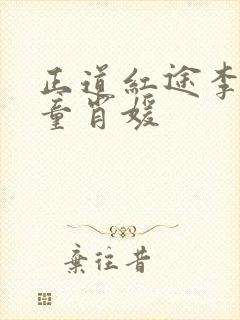 正道红途李
童肖媛
弃往昔